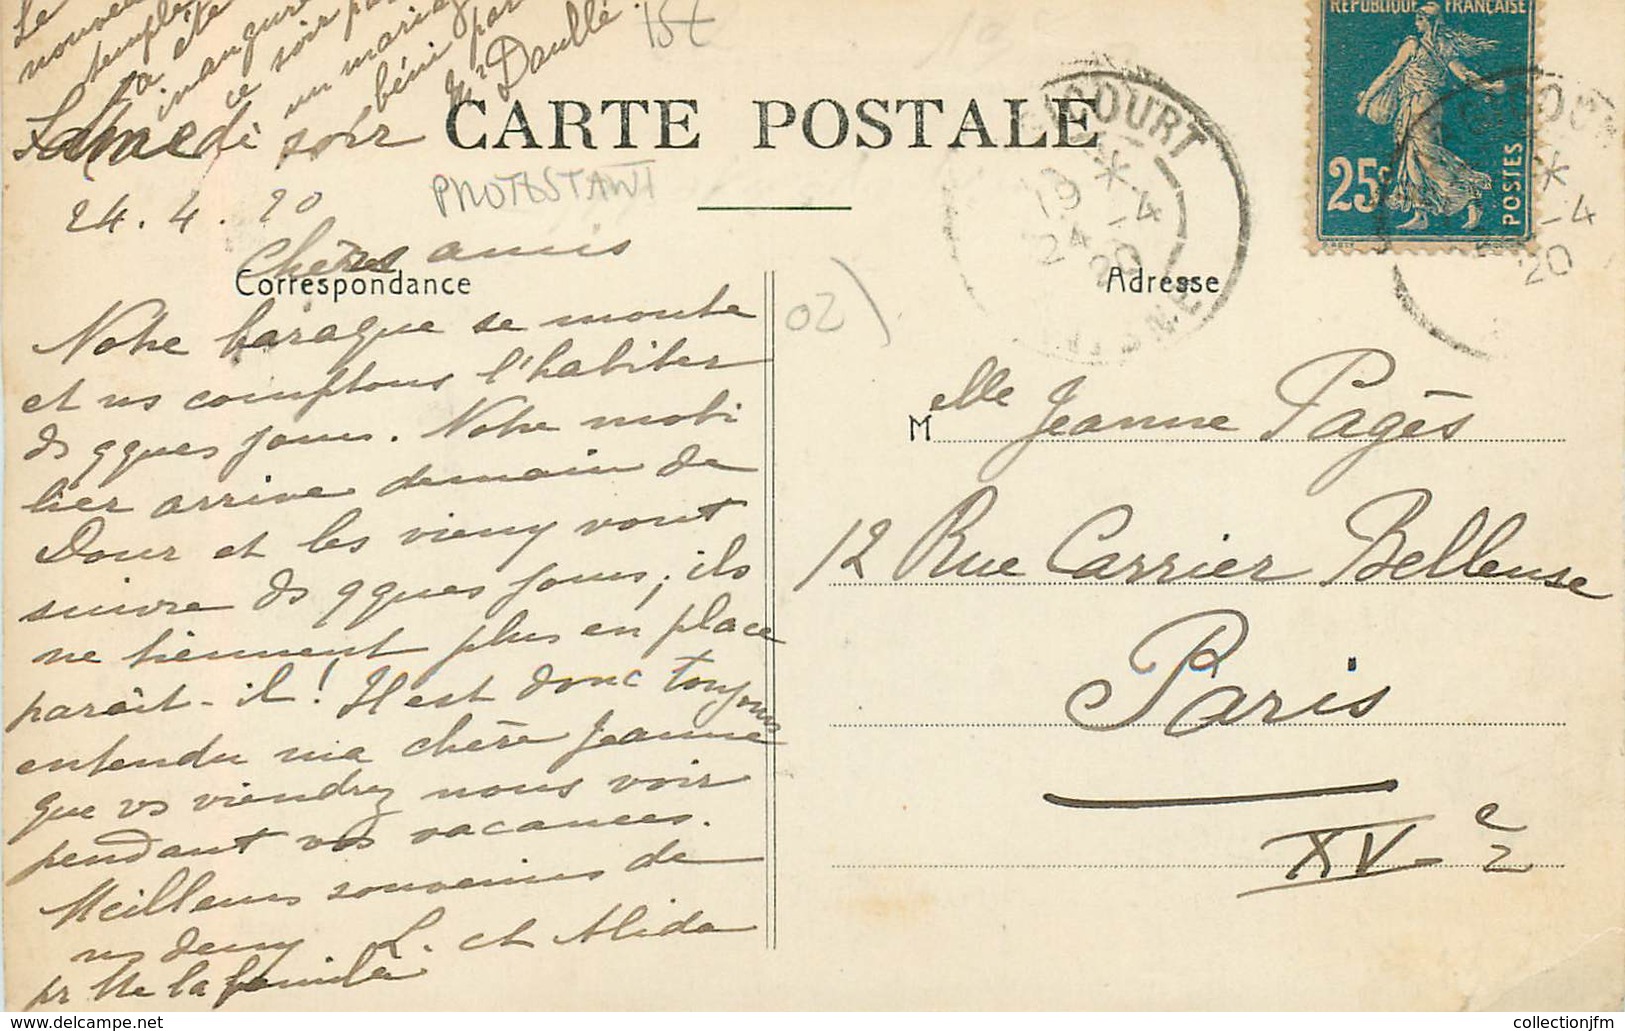 Le
nouveau
temple
a été
inauguré
ce soir par
un mariage
béni par
Mr Daullé.
15€
RÉPUBLIQUE FRANÇAISE
25c
POSTES
CARTE POSTALE
Samedi soir
PROTESTANT
24.4.20
Chers amis
Correspondance
Adresse
02)
COURT
19 * -4
24 20
AISNE
* -4
20
Notre baraque se monte
et ns comptons l'habiter
ds qques jours. Notre mobi
lier arrive demain de
Dour et les vieux vont
suivre ds qques jours; ils
ne tiennent plus en place
paraît-il! Il est donc toujours
entendu ma chère Jeanne
que vs viendrez nous voir
pendant vos vacances.
Meilleurs souvenirs de
ns deux L. et Alida
pr tte la famille
Melle Jeanne Pagès
12 Rue Carrier Belleuse
Paris
XVe
collectionjfm